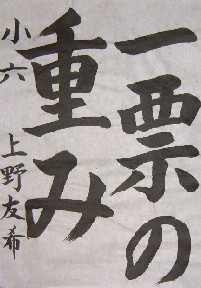 一票の
重み
小六 上野友希